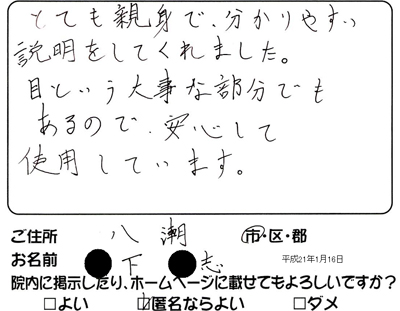 とても親身で、分かりやすい
説明をしてくれました。
目という大事な部分でも
あるので、安心して
使用しています。
ご住所 八潮 市・区・郡
お名前 ●下●志 平成21年1月16日
院内に掲示したり、ホームページに載せてもよろしいですか?
□よい ☑匿名ならよい □ダメ